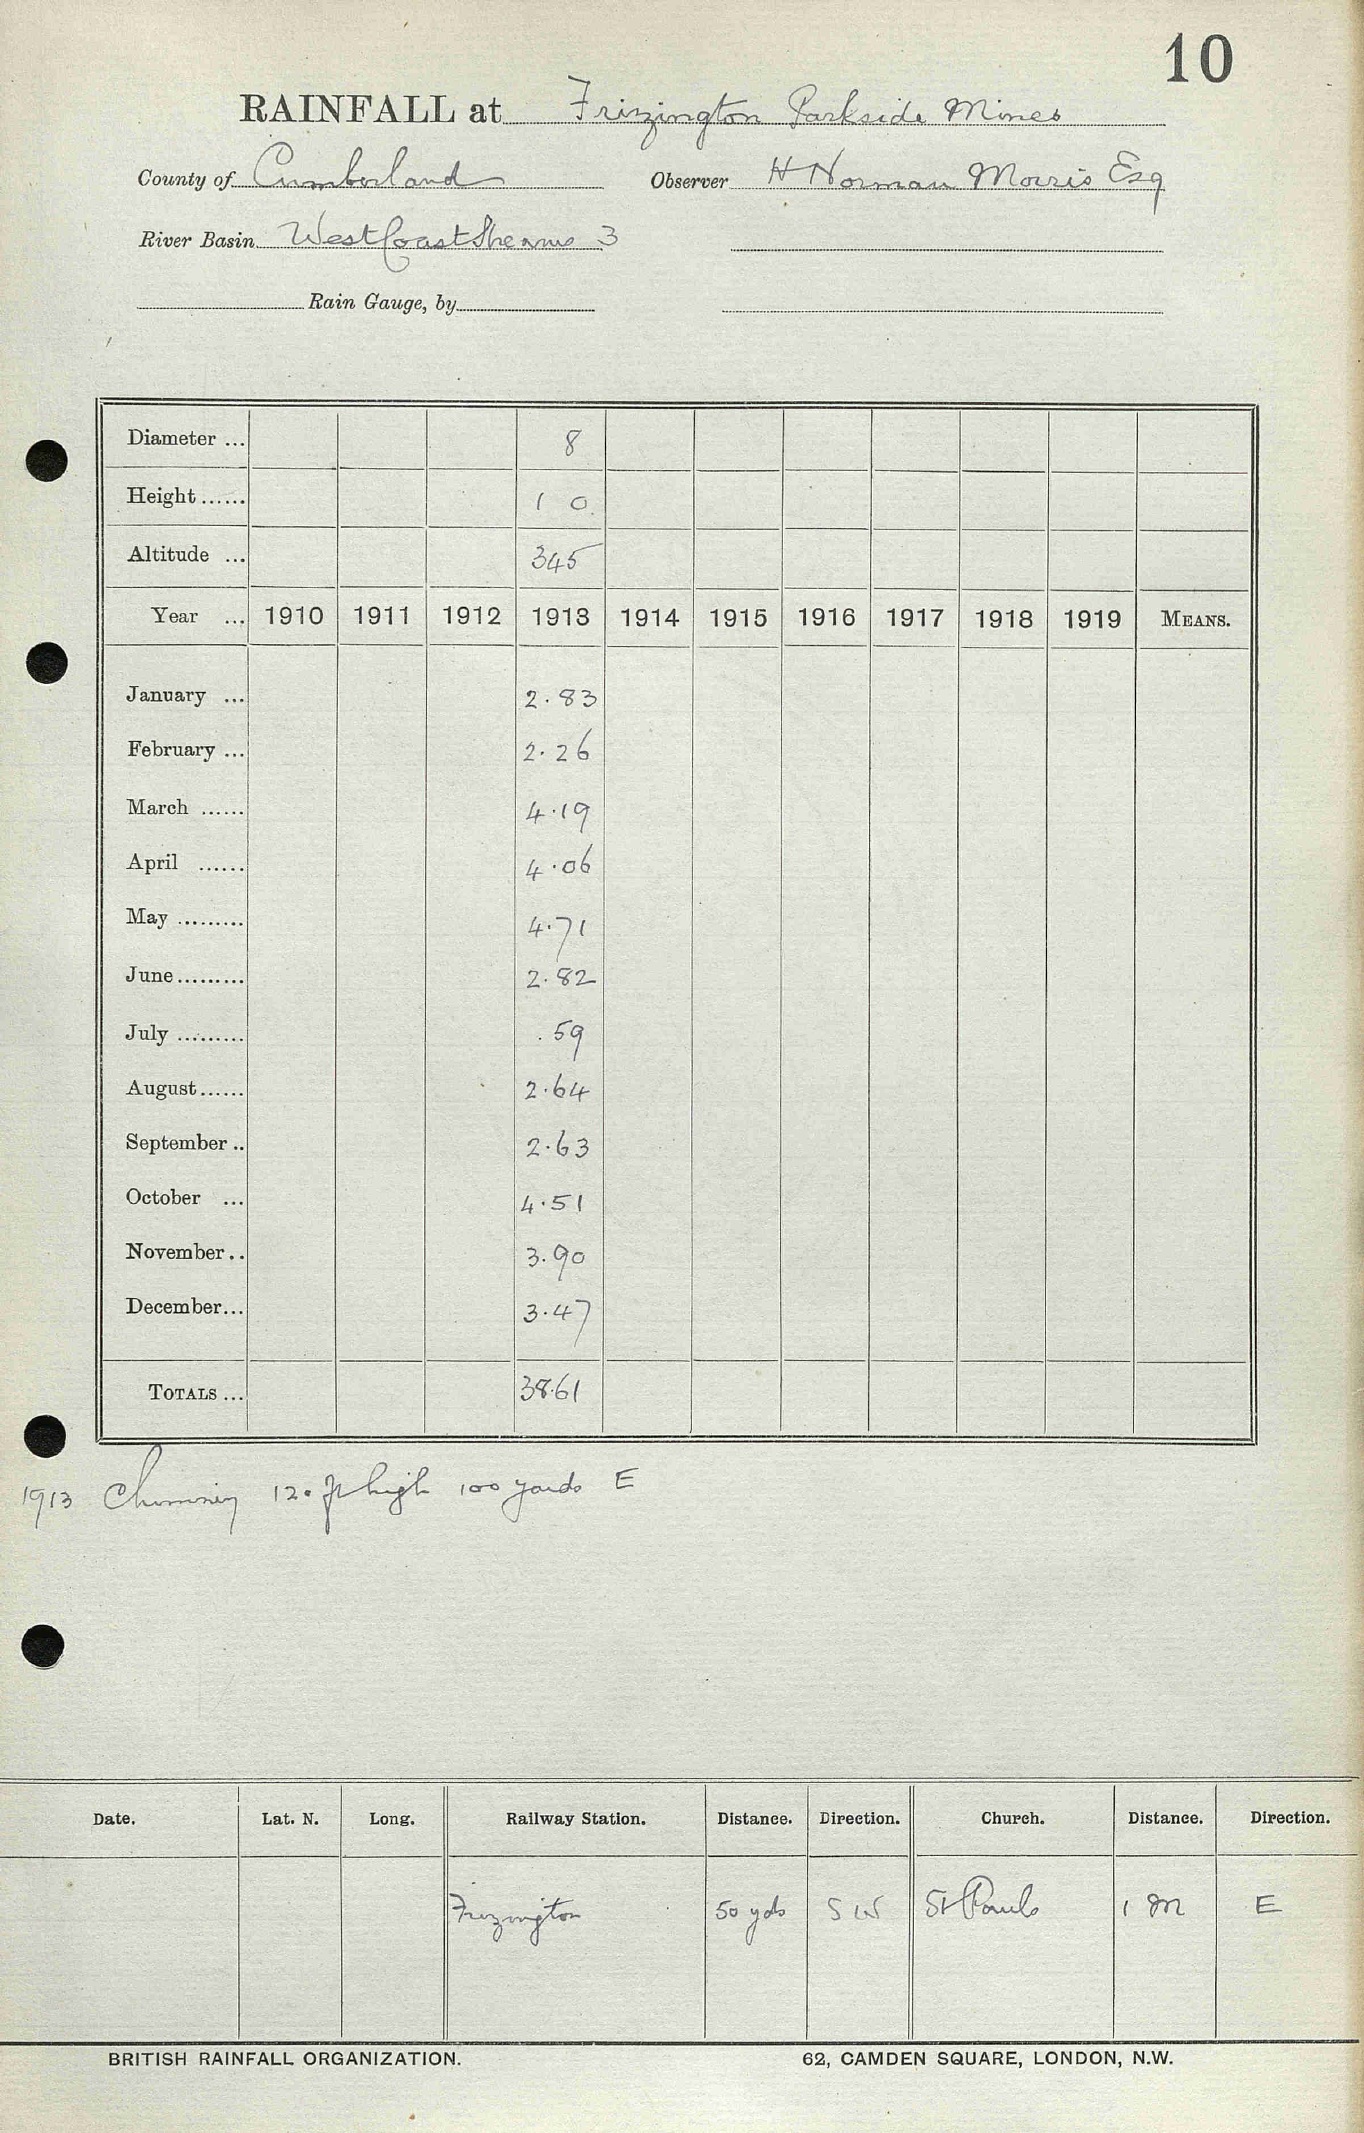 10
RAINFALL at Frizington Parkside Mines
County of Cumberland Observer H Norman Morris Esq
River Basin West Coast Streams 3
Rain Gauge, by
Diameter ... 8
Height ...... 1 0
Altitude ... 345
Year ... 1910 1911 1912 1913 1914 1915 1916 1917 1918 1919 MEANS.
January ... 2.83
February ... 2.26
March ...... 4.19
April ...... 4.06
May ......... 4.71
June ......... 2.82
July ......... .59
August ...... 2.64
September .. 2.63
October ... 4.51
November .. 3.90
December ... 3.47
TOTALS ... 38.61
1913 Chimney 120 ft high 100 yards E
Date. Lat. N. Long. Railway Station. Distance. Direction. Church. Distance. Direction.
Frizington 50 yds S W St Pauls 1 m E
BRITISH RAINFALL ORGANIZATION. 62, CAMDEN SQUARE, LONDON, N.W.